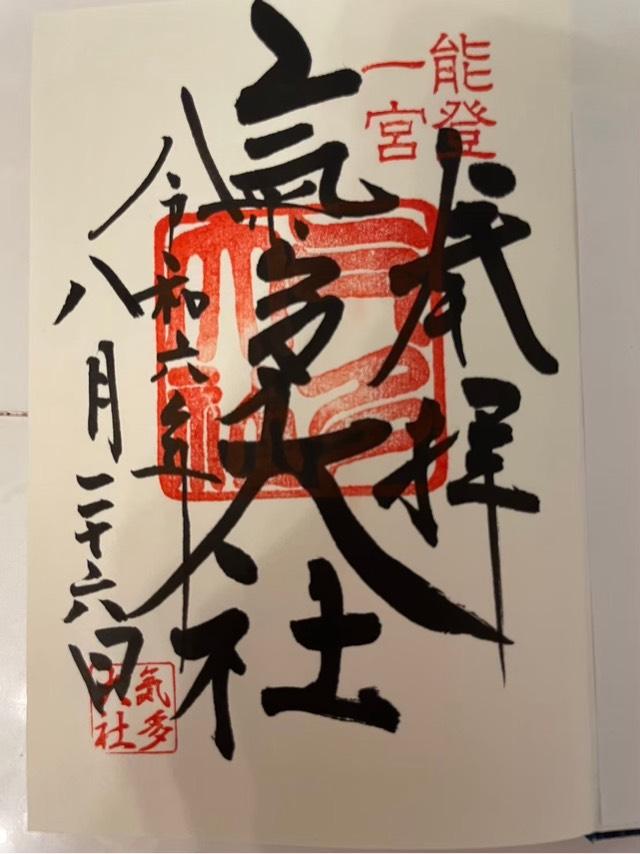 能登
一宮
奉拝
氣多大社
令和六年
八月二十六日
氣多
大社
氣多
大社